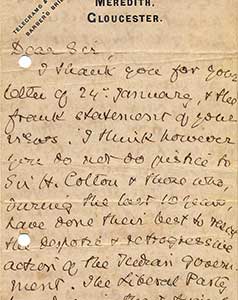 MEREDITH,
GLOUCESTER.
TELEGRAMS &
BARBERS BRI
Dear Sir,
I thank you for your
letter of 24th January, & the
frank statement of your
views. I think however
you do not do justice to
Sir H. Cotton & those who,
during the last 10 years
have done their best to
the & retrogressive
action of the Indian Govern-
ment. The Liberal Party